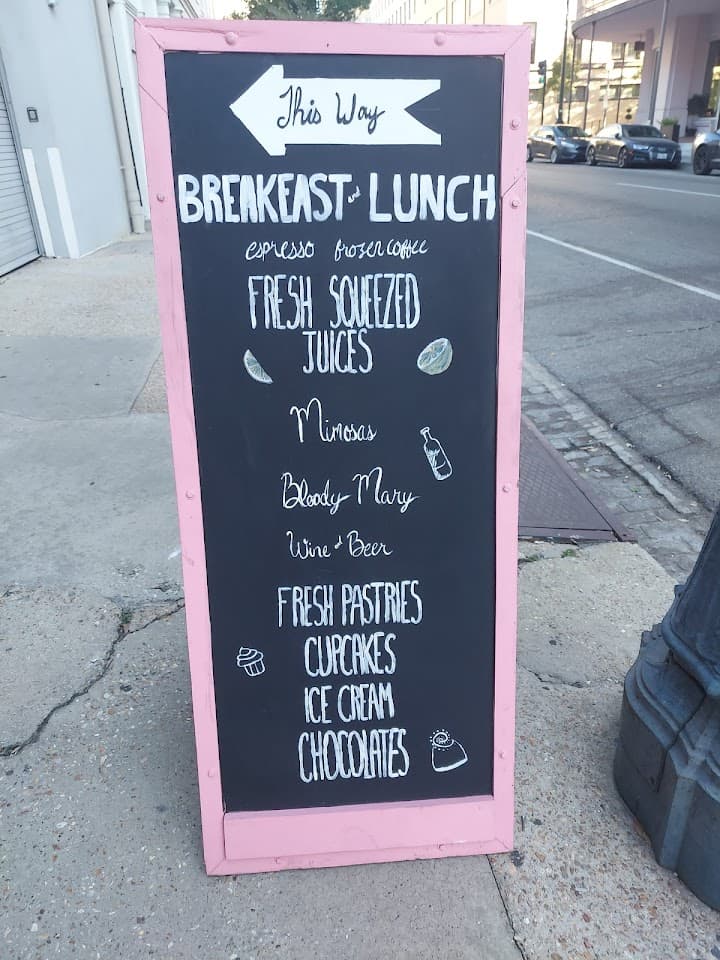 This Way
BREAKFAST and LUNCH
espresso frozen coffee
FRESH SQUEEZED
JUICES
Mimosas
Bloody Mary
Wine & Beer
FRESH PASTRIES
CUPCAKES
ICE CREAM
CHOCOLATES